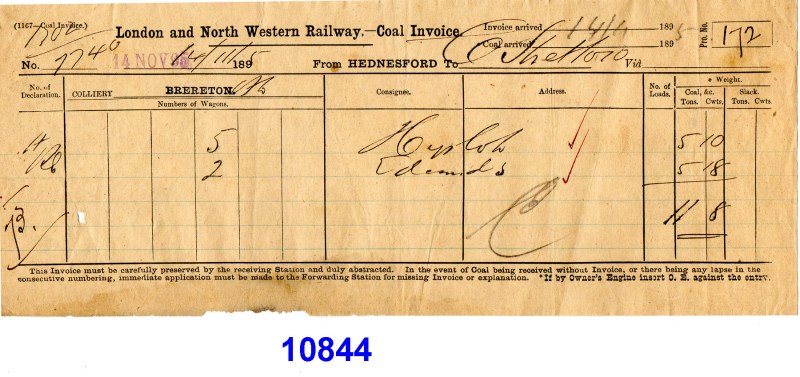 (1167—Coal Invoice.)
London and North Western Railway.—Coal Invoice.
Invoice arrived 14/11 1895
Coal arrived 189
Pro. No. 172
No. 7740 14 NOV 95 11/11/1895 From HEDNESFORD To Shelford Viâ
No. of Declaration.
COLLIERY BRERETON.
Numbers of Wagons.
Consignee.
Address.
No. of Loads.
* Weight.
Coal, &c. Slack.
Tons. Cwts. Tons. Cwts.
5 5 10
2 Edmunds 5 18
11 8
This Invoice must be carefully preserved by the receiving Station and duly abstracted. In the event of Coal being received without Invoice, or there being any lapse in the
consecutive numbering, immediate application must be made to the Forwarding Station for missing Invoice or explanation. *If by Owner's Engine insert O. E. against the entry.
10844